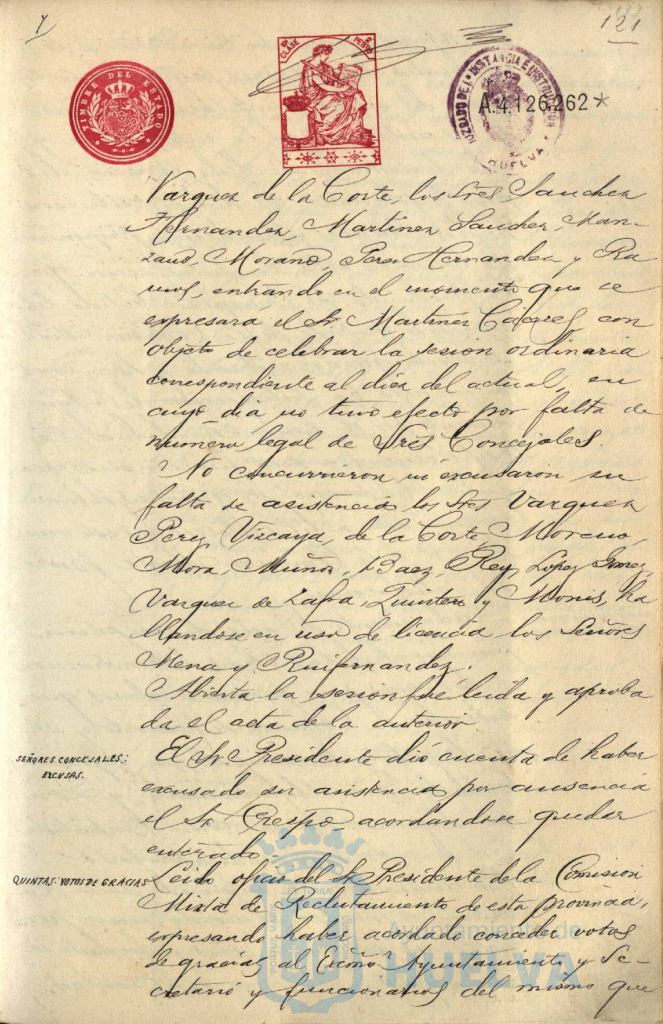 121
TIMBRE DEL ESTADO
10ª CLASE 2 PESETAS
JUZGADO DE 1ª INSTANCIA E INSTRUCCION
HUELVA
A.4.126.262*
Vazquez de la Corte, los Sres Sanchez
Hernandez, Martinez Sanchez, Man-
zano, Morano, Perez Hernandez y Ra
mos, entrando en el momento que se
expresará el Sr Martinez Cáceres, con
objeto de celebrar la sesion ordinaria
correspondiente al diez del actual, en
cuyo dia no tuvo efecto por falta de
número legal de Sres Concejales.
No concurrieron ni excusaron su
falta de asistencia los Sres Vazquez
Perez, Vizcaya, de la Corte, Moreno,
Mora, Muñoz, Baez, Rey, Lopez Gomez,
Vazquez de Zafra, Quintero y Monis, ha
llandose en uso de licencia los Señores
Mena y Ruifernandez.
Abierta la sesion fué leida y aproba
da el acta de la anterior
SEÑORES CONCEJALES: EXCUSAS.
El Sr Presidente dió cuenta de haber
excusado su asistencia por ausencia
el Sr Crespo, acordandose quedar
enterado.
QUINTAS: VOTOS DE GRACIAS
Leido oficio del Sr Presidente de la Comision
Mixta de Reclutamiento de esta provincia,
expresando haber acordado conceder votos
de gracias al Excmo Ayuntamiento y Se-
cretario y funcionarios del mismo que
Ayuntamiento de
HUELVA